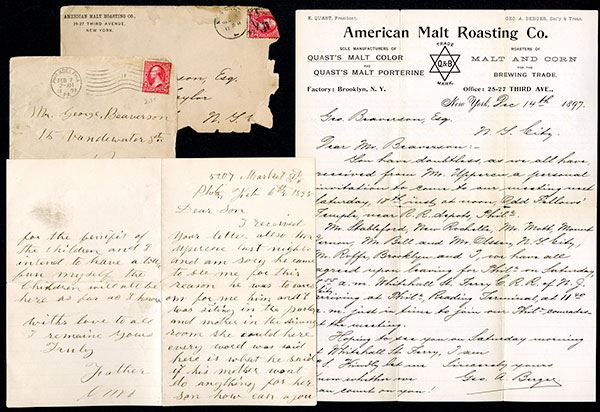 AMERICAN MALT ROASTING CO.
25-27 THIRD AVENUE,
NEW YORK.
Esq.
Taylor
N.Y.
PHILADELPHIA
FEB 7
PA.
Mr. George Beaverson
15 Vandewater St.
E. QUAST, President.
GEO. A. BERGER, Sec'y & Treas.
American Malt Roasting Co.
SOLE MANUFACTURERS OF
QUAST'S MALT COLOR
AND
QUAST'S MALT PORTERINE
TRADE
Q&B
MARK
ROASTERS OF
MALT AND CORN
FOR THE
BREWING TRADE.
Factory: Brooklyn, N. Y.
Office: 25-27 THIRD AVE.,
New York, Dec 14th 1897.
Geo. Beaverson, Esq.
N. Y. City.
Dear Mr. Beaverson:-
You have doubtless, as we all have
received from Mr. Upperco a personal
invitation to come to our meeting next
Saturday, 18th inst, at noon, Odd Fellows'
Temple, near R.R. depots, Phila.
Mr. Stableford, New Rochelle, Mr. Moth, Mount
Vernon, Mr. Bell and Mr. N. Y. City,
Mr. Rolfe, Brooklyn and I, we have all
agreed upon leaving for Phila. on Saturday,
a.m. Whitehall St. Ferry C. R. R. of N. J.
arriving at Phila. Reading Terminal at 11
just in time to join our Phila. comrades
at the meeting.
Hoping to see you Saturday morning
Whitehall St. Ferry, I am
Kindly let me Sincerely yours
know whether we Geo. A. Berger
can count on you!
5207 Market St.
Phila, Feb 6th
Dear Son
I received
your letter also
last night
and am sorry he came
to see me for this
reason he was to
for me him and I
was siting in the parlor
and mother in the dining
room she could here
every word was said
here is what he said
if his mother wont
do anything for her
son how can you
for the benifit of
the children and I
intend to have a little
fun myself the
Children will all be
here as far as I know
with love to all
I remaine yours
Truly
Father